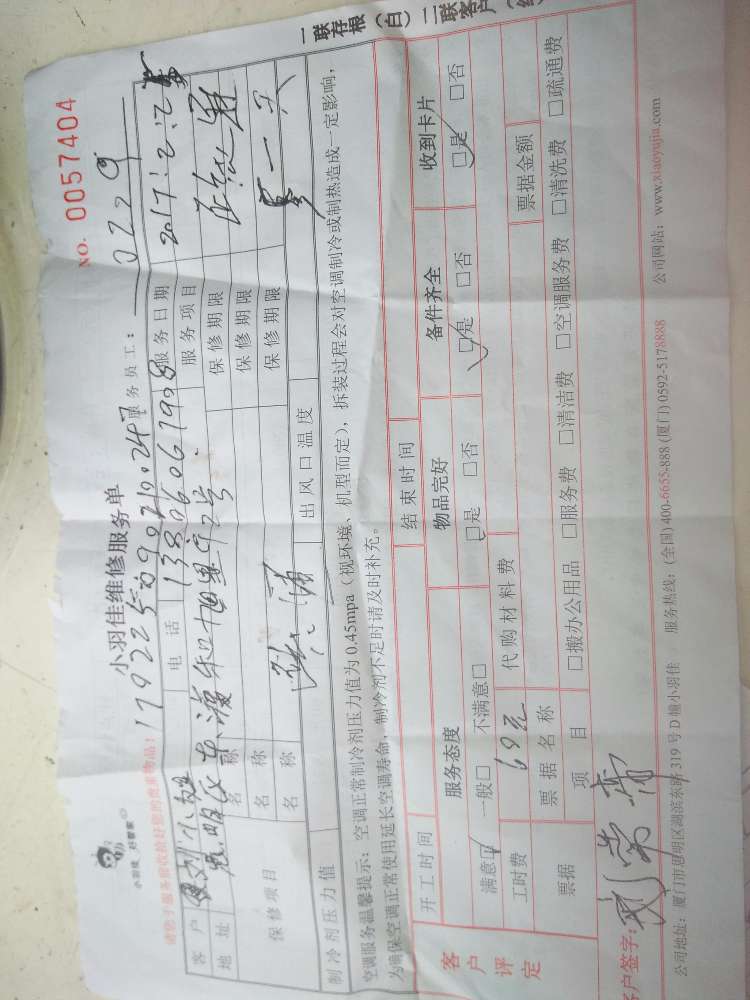 一联存根（白）二联客户（红
小羽佳 好管家
小羽佳维修服务单
NO. 0057404
服务员工：0229
请您于服务前收拾好您的贵重物品！
客户 刘小姐 电话 13806061908 服务日期 2017.2.2
地址 思明区 服务项目
保修项目 名称 保修期限
名称 保修期限
名称 保修期限
制冷剂压力值 出风口温度
空调服务温馨提示：空调正常制冷剂压力值为0.45mpa（视环境、机型而定），拆装过程会对空调制冷或制热造成一定影响，
为确保空调正常使用延长空调寿命，制冷剂不足时请及时补充。
客户评定
开工时间 结束时间
服务态度 物品完好 备件齐全 收到卡片
满意☑ 一般□ 不满意□ ☑是 □否 ☑是 □否 ☑是 □否
工时费 69元 代购材料费
票据 票据名称 票据金额
项目 □搬办公用品 □服务费 □清洁费 □空调服务费 □清洗费 □疏通费
客户签字：
公司地址：厦门市思明区湖滨东路319号D幢小羽佳 服务热线：(全国)400-6655-888 (厦门)0592-5178888 公司网站：www.xiaoyujia.com